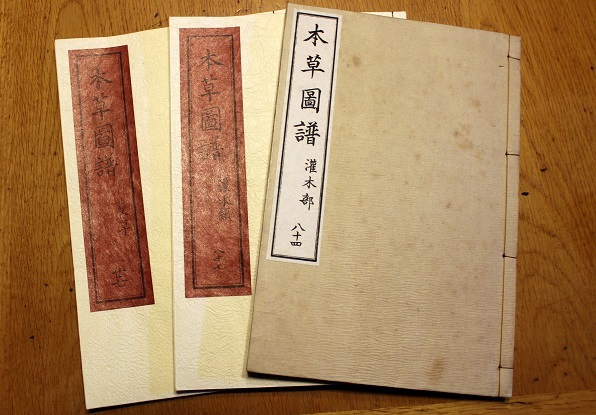 本草圖譜 灌木部 八十四
本草圖譜 灌木部
本草圖譜